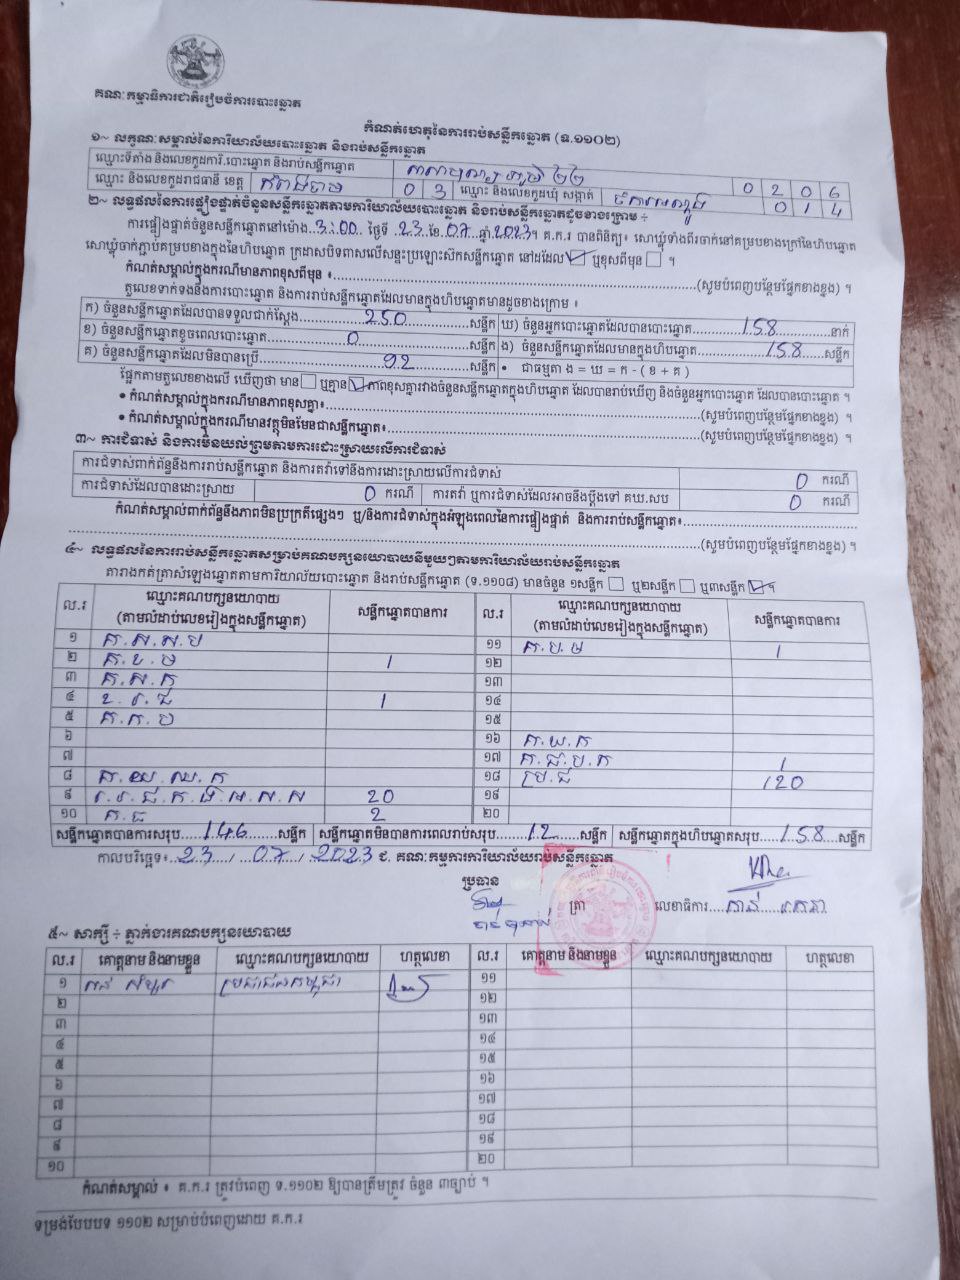 គណៈកម្មាធិការជាតិរៀបចំការបោះឆ្នោត
កំណត់ហេតុនៃការរាប់សន្លឹកឆ្នោត (ទ.១១០២)
១~ លក្ខណៈសម្គាល់នៃការិយាល័យបោះឆ្នោត និងរាប់សន្លឹកឆ្នោត
ឈ្មោះទីតាំង និងលេខកូដការិ.បោះឆ្នោត និងរាប់សន្លឹកឆ្នោត 0 2 0 6
ឈ្មោះ និងលេខកូដរាជធានី ខេត្ត កំពង់ចាម 0 3 ឈ្មោះ និងលេខកូដឃុំ សង្កាត់ 0 1 4
២~ លទ្ធផលនៃការផ្ទៀងផ្ទាត់ចំនួនសន្លឹកឆ្នោតតាមការិយាល័យបោះឆ្នោត និងរាប់សន្លឹកឆ្នោតដូចខាងក្រោម ÷
ការផ្ទៀងផ្ទាត់ចំនួនសន្លឹកឆ្នោតនៅម៉ោង 3:00 ថ្ងៃទី 23 ខែ 07 ឆ្នាំ 2023។ គ.ក.រ បានពិនិត្យ៖ សោឃ្លុំទាំងពីរចាក់នៅគម្របខាងក្រៅនៃហិបឆ្នោត
សោឃ្លុំចាក់ភ្ជាប់គម្របខាងក្នុងនៃហិបឆ្នោត ក្រដាសបិទពាសលើសន្ទះប្រឡោះស៊កសន្លឹកឆ្នោត នៅដដែល ☑ ឬខុសពីមុន ☐ ។
កំណត់សម្គាល់ក្នុងករណីមានភាពខុសពីមុន ៖ (សូមបំពេញបន្ថែមផ្នែកខាងខ្នង) ។
តួលេខទាក់ទងនឹងការបោះឆ្នោត និងការរាប់សន្លឹកឆ្នោតដែលមានក្នុងហិបឆ្នោតមានដូចខាងក្រោម ៖
ក) ចំនួនសន្លឹកឆ្នោតដែលបានទទួលជាក់ស្តែង 250 សន្លឹក ឃ) ចំនួនអ្នកបោះឆ្នោតដែលបានបោះឆ្នោត 158 នាក់
ខ) ចំនួនសន្លឹកឆ្នោតខូចពេលបោះឆ្នោត 0 សន្លឹក ង) ចំនួនសន្លឹកឆ្នោតដែលមានក្នុងហិបឆ្នោត 158 សន្លឹក
គ) ចំនួនសន្លឹកឆ្នោតដែលមិនបានប្រើ 92 សន្លឹក • ជាធម្មតា ង = ឃ = ក - ( ខ + គ )
ផ្អែកតាមតួលេខខាងលើ ឃើញថា មាន ☐ ឬគ្មាន ☑ ភាពខុសគ្នារវាងចំនួនសន្លឹកឆ្នោតក្នុងហិបឆ្នោត ដែលបានរាប់ឃើញ និងចំនួនអ្នកបោះឆ្នោត ដែលបានបោះឆ្នោត ។
• កំណត់សម្គាល់ក្នុងករណីមានភាពខុសគ្នា៖ (សូមបំពេញបន្ថែមផ្នែកខាងខ្នង) ។
• កំណត់សម្គាល់ក្នុងករណីមានវត្ថុមិនមែនជាសន្លឹកឆ្នោត៖ (សូមបំពេញបន្ថែមផ្នែកខាងខ្នង) ។
៣~ ការជំទាស់ និងការមិនយល់ព្រមតាមការដោះស្រាយលើការជំទាស់
ការជំទាស់ពាក់ព័ន្ធនឹងការរាប់សន្លឹកឆ្នោត និងការតវ៉ាទៅនឹងការដោះស្រាយលើការជំទាស់ 0 ករណី
ការជំទាស់ដែលបានដោះស្រាយ 0 ករណី ការតវ៉ា ឬការជំទាស់ដែលអាចនឹងប្តឹងទៅ គឃ.សប 0 ករណី
កំណត់សម្គាល់ពាក់ព័ន្ធនឹងភាពមិនប្រក្រតីផ្សេងៗ ឬ/និងការជំទាស់ក្នុងអំឡុងពេលនៃការផ្ទៀងផ្ទាត់ និងការរាប់សន្លឹកឆ្នោត៖
(សូមបំពេញបន្ថែមផ្នែកខាងខ្នង) ។
៤~ លទ្ធផលនៃការរាប់សន្លឹកឆ្នោតសម្រាប់គណបក្សនយោបាយនីមួយៗតាមការិយាល័យរាប់សន្លឹកឆ្នោត
តារាងកត់ត្រាសំឡេងឆ្នោតតាមការិយាល័យបោះឆ្នោត និងរាប់សន្លឹកឆ្នោត (ទ.១១០៨) មានចំនួន ១សន្លឹក ☐ ឬ២សន្លឹក ☐ ឬ៣សន្លឹក ☑ ។
ល.រ ឈ្មោះគណបក្សនយោបាយ (តាមលំដាប់លេខរៀងក្នុងសន្លឹកឆ្នោត) សន្លឹកឆ្នោតបានការ ល.រ ឈ្មោះគណបក្សនយោបាយ (តាមលំដាប់លេខរៀងក្នុងសន្លឹកឆ្នោត) សន្លឹកឆ្នោតបានការ
១ ១១ 1
២ គ.ខ.ម 1 ១២
៣ ១៣
៤ 1 ១៤
៥ ១៥
៦ ១៦ គ.យ.ក
៧ ១៧ គ.ជ.ប.ក 1
៨ ១៨ ប្រ.ជ 120
៩ 20 ១៩
១០ 2 ២០
សន្លឹកឆ្នោតបានការសរុប 146 សន្លឹក សន្លឹកឆ្នោតមិនបានការពេលរាប់សរុប 12 សន្លឹក សន្លឹកឆ្នោតក្នុងហិបឆ្នោតសរុប 158 សន្លឹក
កាលបរិច្ឆេទ៖ 23 / 07 / 2023 ជ. គណៈកម្មការការិយាល័យរាប់សន្លឹកឆ្នោត
ប្រធាន
ត្រា លេខាធិការ
៥~ សាក្សី ÷ ភ្នាក់ងារគណបក្សនយោបាយ
ល.រ គោត្តនាម និងនាមខ្លួន ឈ្មោះគណបក្សនយោបាយ ហត្ថលេខា ល.រ គោត្តនាម និងនាមខ្លួន ឈ្មោះគណបក្សនយោបាយ ហត្ថលេខា
១ ប្រជាជនកម្ពុជា ១១
២ ១២
៣ ១៣
៤ ១៤
៥ ១៥
៦ ១៦
៧ ១៧
៨ ១៨
៩ ១៩
១០ ២០
កំណត់សម្គាល់ ៖ គ.ក.រ ត្រូវបំពេញ ទ.១១០២ ឱ្យបានត្រឹមត្រូវ ចំនួន ៣ច្បាប់ ។
ទម្រង់បែបបទ ១១០២ សម្រាប់បំពេញដោយ គ.ក.រ